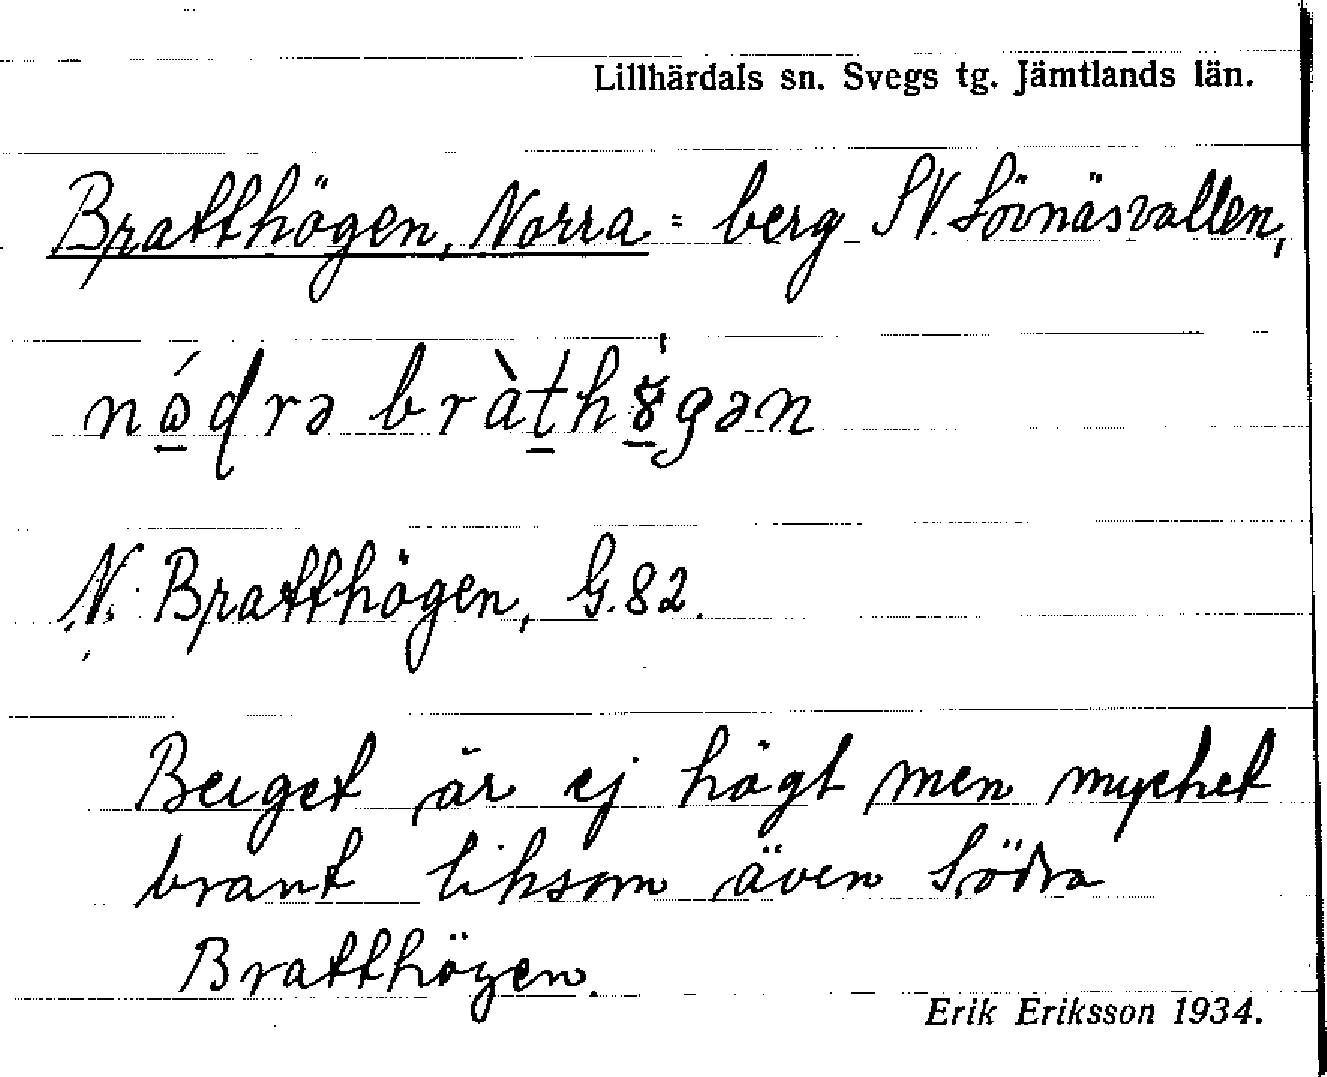 Lillhärdals sn. Svegs tg. Jämtlands län.
Bratthögen, Norra = berg SV. Lövnäsvallen,
N. Bratthögen, G.82.
Berget är ej högt men mycket
brant liksom även Södra
Bratthögen.
Erik Eriksson 1934.